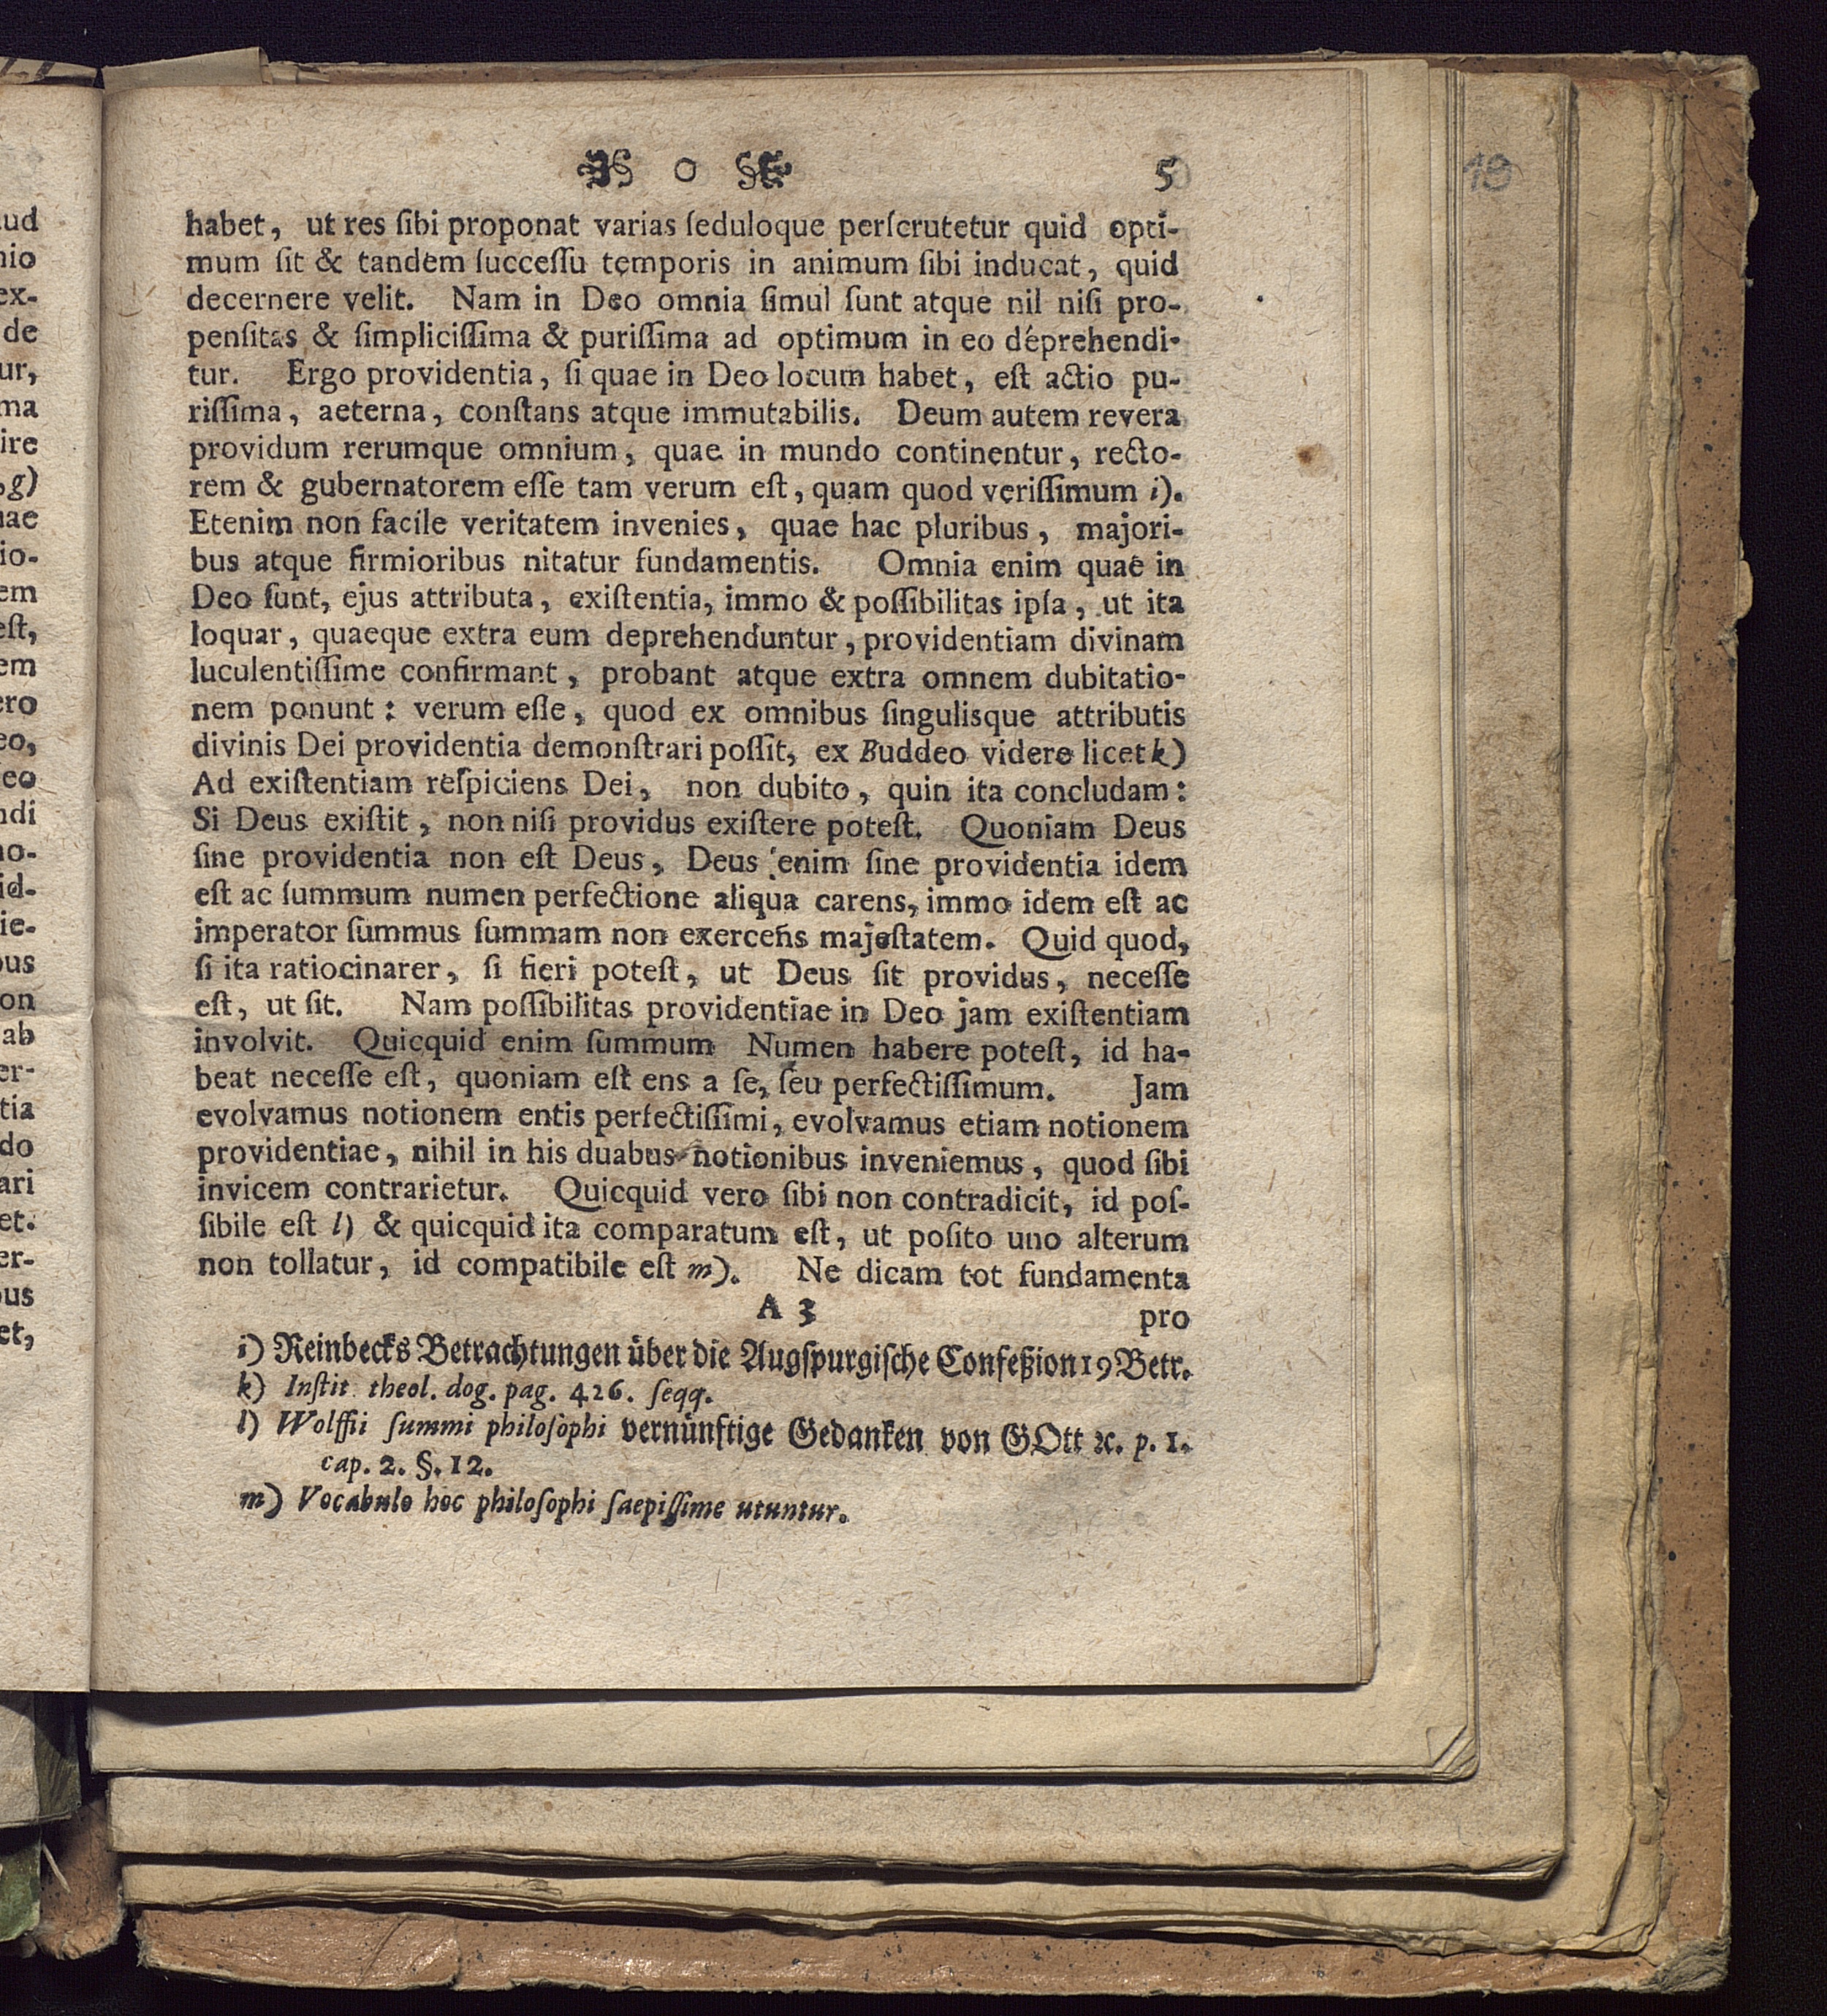 0 5
19
habet, ut res ſibi proponat varias ſeduloque perſcrutetur quid opti-
mum ſit & tandem ſucceſſu temporis in animum ſibi inducat, quid
decernere velit. Nam in Deo omnia ſimul ſunt atque nil niſi pro-
penſitas & ſimpliciſſima & puriſſima ad optimum in eo deprehendi-
tur. Ergo providentia, ſi quae in Deo locum habet, eſt actio pu-
riſſima, aeterna, conſtans atque immutabilis. Deum autem revera
providum rerumque omnium, quae in mundo continentur, recto-
rem & gubernatorem eſſe tam verum eſt, quam quod veriſſimum i).
Etenim non facile veritatem invenies, quae hac pluribus, majori-
bus atque firmioribus nitatur fundamentis. Omnia enim quae in
Deo ſunt, ejus attributa, exiſtentia, immo & poſſibilitas ipſa, ut ita
loquar, quaeque extra eum deprehenduntur, providentiam divinam
luculentiſſime confirmant, probant atque extra omnem dubitatio-
nem ponunt: verum eſſe, quod ex omnibus ſingulisque attributis
divinis Dei providentia demonſtrari poſſit, ex Buddeo videre licet k)
Ad exiſtentiam reſpiciens Dei, non dubito, quin ita concludam:
Si Deus exiſtit, non niſi providus exiſtere poteſt. Quoniam Deus
ſine providentia non eſt Deus, Deus enim ſine providentia idem
eſt ac ſummum numen perfectione aliqua carens, immo idem eſt ac
imperator ſummus ſummam non exercens majeſtatem. Quid quod,
ſi ita ratiocinarer, ſi fieri poteſt, ut Deus ſit providus, neceſſe
eſt, ut ſit. Nam poſſibilitas providentiae in Deo jam exiſtentiam
involvit. Quicquid enim ſummum Numen habere poteſt, id ha-
beat neceſſe eſt, quoniam eſt ens a ſe, ſeu perfectiſſimum. Jam
evolvamus notionem entis perfectiſſimi, evolvamus etiam notionem
providentiae, nihil in his duabus notionibus inveniemus, quod ſibi
invicem contrarietur. Quicquid vero ſibi non contradicit, id poſ-
ſibile eſt l) & quicquid ita comparatum eſt, ut poſito uno alterum
non tollatur, id compatibile eſt m). Ne dicam tot fundamenta
A 3 pro
i) Reinbecks Betrachtungen über die Augſpurgiſche Confeßion 19 Betr.
k) Inſtit. theol. dog. pag. 426. ſeqq.
l) Wolffii ſummi philoſophi vernünftige Gedanken von GOtt ꝛc. p. 1.
cap. 2. §. 12.
m) Vocabulo hoc philoſophi ſaepiſſime utuntur.